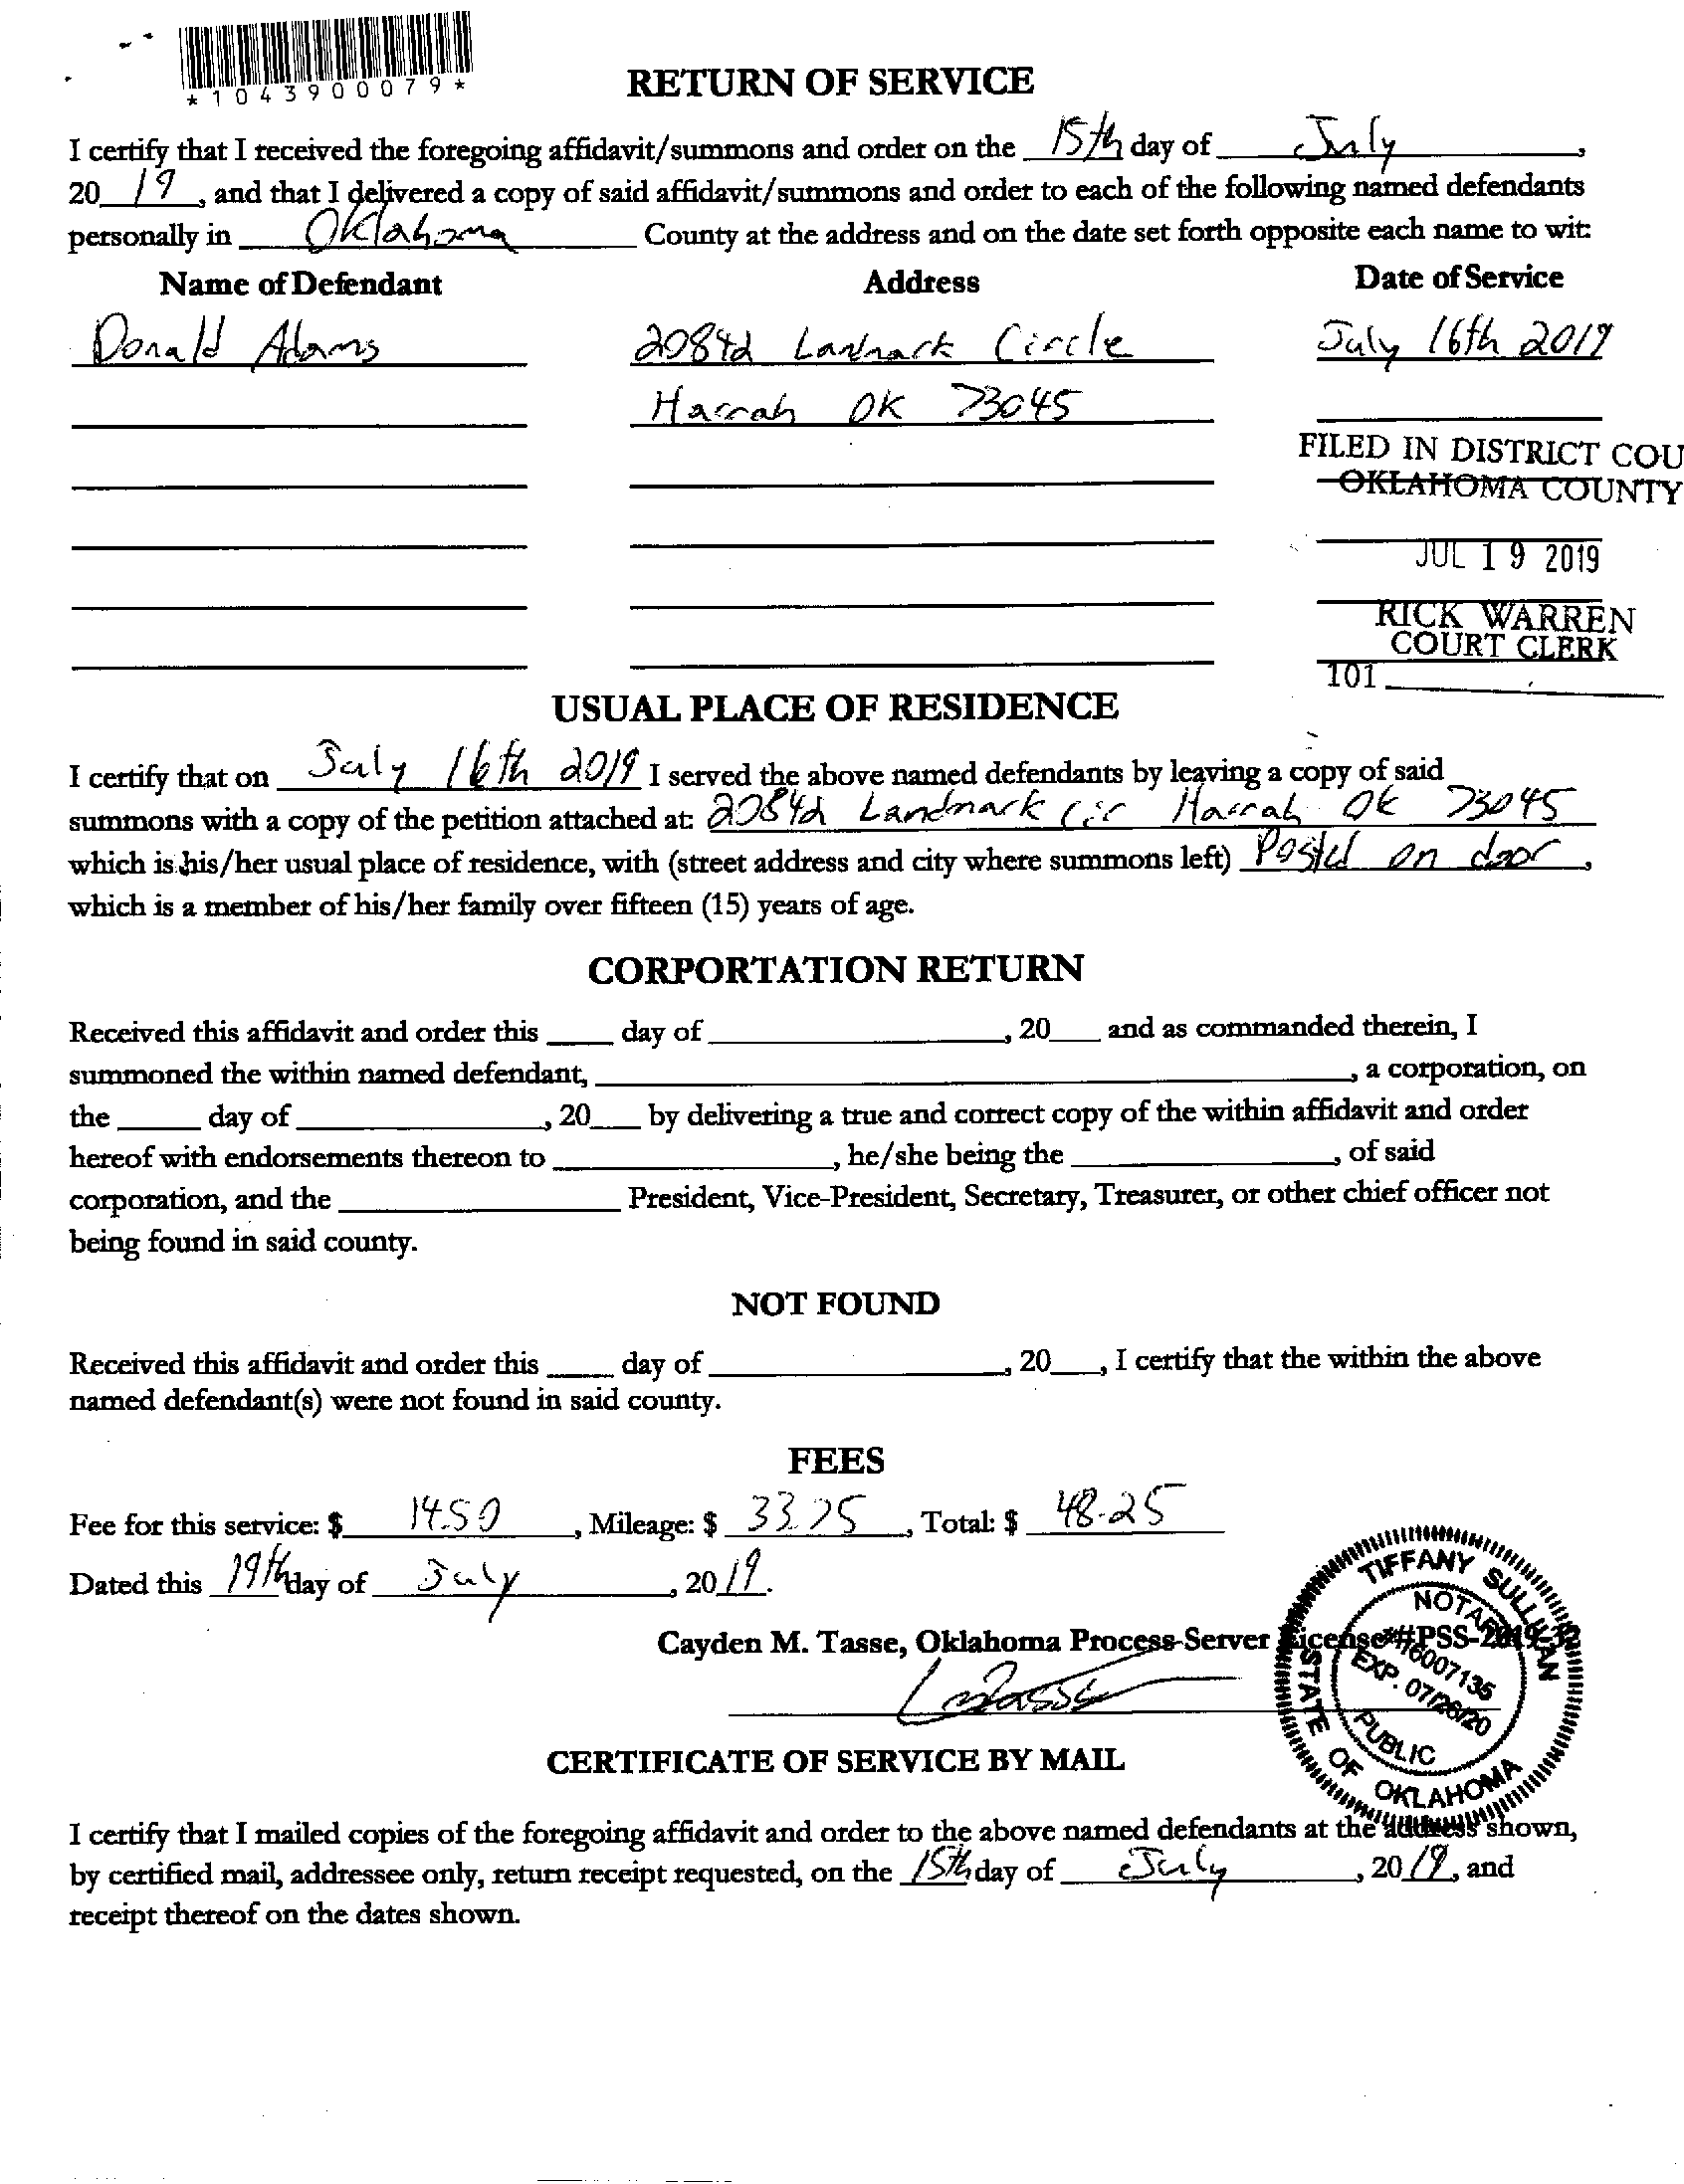 *1043900079*
RETURN OF SERVICE
I certify that I received the foregoing affidavit/summons and order on the 15th day of July,
20 19, and that I delivered a copy of said affidavit/summons and order to each of the following named defendants
personally in Oklahoma County at the address and on the date set forth opposite each name to wit:
Name of Defendant Address Date of Service
Donald Adams 20842 Landmark Circle July 16th 2019
Harrah OK 73045
FILED IN DISTRICT COU
OKLAHOMA COUNTY
JUL 19 2019
RICK WARREN
COURT CLERK
101
USUAL PLACE OF RESIDENCE
I certify that on July 16th 2019 I served the above named defendants by leaving a copy of said
summons with a copy of the petition attached at: 20842 Landmark Cir Harrah OK 73045
which is his/her usual place of residence, with (street address and city where summons left) Posted on door,
which is a member of his/her family over fifteen (15) years of age.
CORPORTATION RETURN
Received this affidavit and order this ____ day of ____, 20__ and as commanded therein, I
summoned the within named defendant, ____, a corporation, on
the ____ day of ____, 20__ by delivering a true and correct copy of the within affidavit and order
hereof with endorsements thereon to ____, he/she being the ____, of said
corporation, and the ____ President, Vice-President, Secretary, Treasurer, or other chief officer not
being found in said county.
NOT FOUND
Received this affidavit and order this ____ day of ____, 20__, I certify that the within the above
named defendant(s) were not found in said county.
FEES
Fee for this service: $ 14.50, Mileage: $ 33.75, Total: $ 48.25
Dated this 19th day of July, 20 19.
Cayden M. Tasse, Oklahoma Process-Server License #PSS-2019-
TIFFANY SULLIVAN
NOTARY PUBLIC
#16007135
EXP. 07/26/20
STATE OF OKLAHOMA
CERTIFICATE OF SERVICE BY MAIL
I certify that I mailed copies of the foregoing affidavit and order to the above named defendants at the address shown,
by certified mail, addressee only, return receipt requested, on the 15th day of July, 20 19, and
receipt thereof on the dates shown.